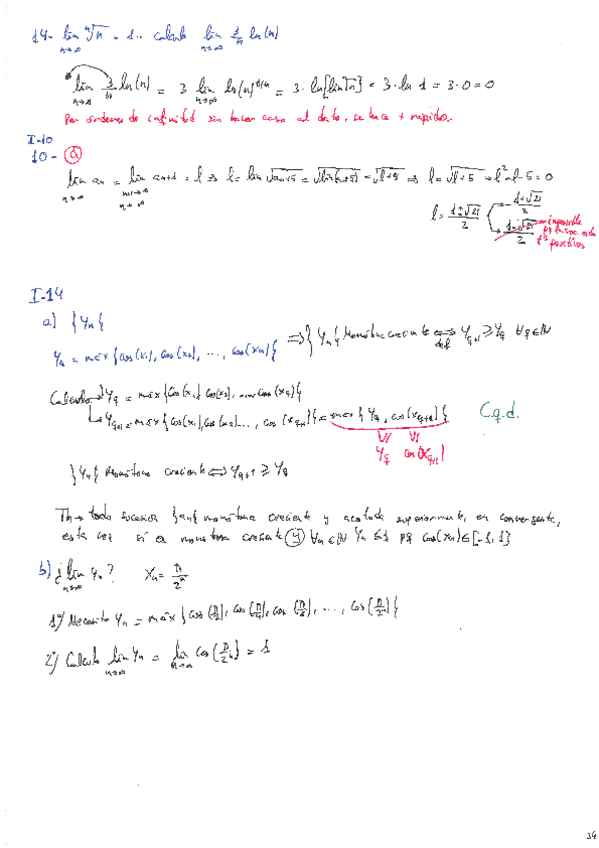 14- lim ⁿ√n = 1.. calcula lim 3/n ln(n)
n→∞ n→∞
lim 3/n ln(n) = 3 lim ln(n)^1/n = 3·ln[lim ⁿ√n] = 3·ln 1 = 3·0=0
n→∞ n→∞
Por órdenes de infinitud sin hacer caso al dato, se hace + rápido.
I-10
10- a
lim an = lim an+1 = l ⇒ l = lim √an+5 = √lim(an+5) = √l+5 ⇒ l = √l+5 → l²-l-5=0
n→∞ n→∞
l = 1±√21/2
1+√21/2
1-√21/2 imposible
positivos
I-14
a) {Yn}
Yn = máx {cos(x1), cos(x2), ..., cos(xn)}
⇒ {Yn} Monótona creciente ⇔ Yq+1 ≥ Yq ∀q∈ℕ
def
Calculo Yq = máx {cos(x1), cos(x2), ..., cos(xq)}
Yq+1 = máx {cos(x1), cos(x2)..., cos(xq+1)} = máx {Yq, cos(xq+1)} C.q.d.
VI VI
Yq cos(xq+1)
{Yn} Monótona creciente ⇔ Yq+1 ≥ Yq
Th → toda sucesión {an} monótona creciente y acotada superiormente, es convergente,
esta vez sí es monótona creciente y ∀n∈ℕ Yn ≤ 1 pq cos(xn)∈[-1,1]
b) ¿lim Yn? Xn = π/2ⁿ
n→∞
1º) Necesito Yn = máx {cos(π/2), cos(π/4), cos(π/8), ..., cos(π/2ⁿ)}
2º) Calculo lim Yn = lim cos(π/2ⁿ) = 1
n→∞ n→∞
34